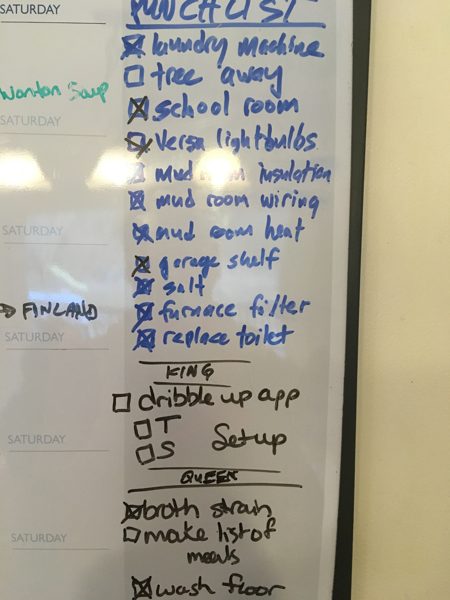 SATURDAY
PUNCH LIST
laundry machine
tree away
Wonton Soup
school room
SATURDAY
Versa lightbulbs
mud room insulation
mud room wiring
SATURDAY
mud room heat
garage shelf
salt
→ FINLAND
furnace filter
SATURDAY
replace toilet
KING
dribble up app
T
SATURDAY
S Setup
QUEEN
broth strain
SATURDAY
make list of
meals
wash floor